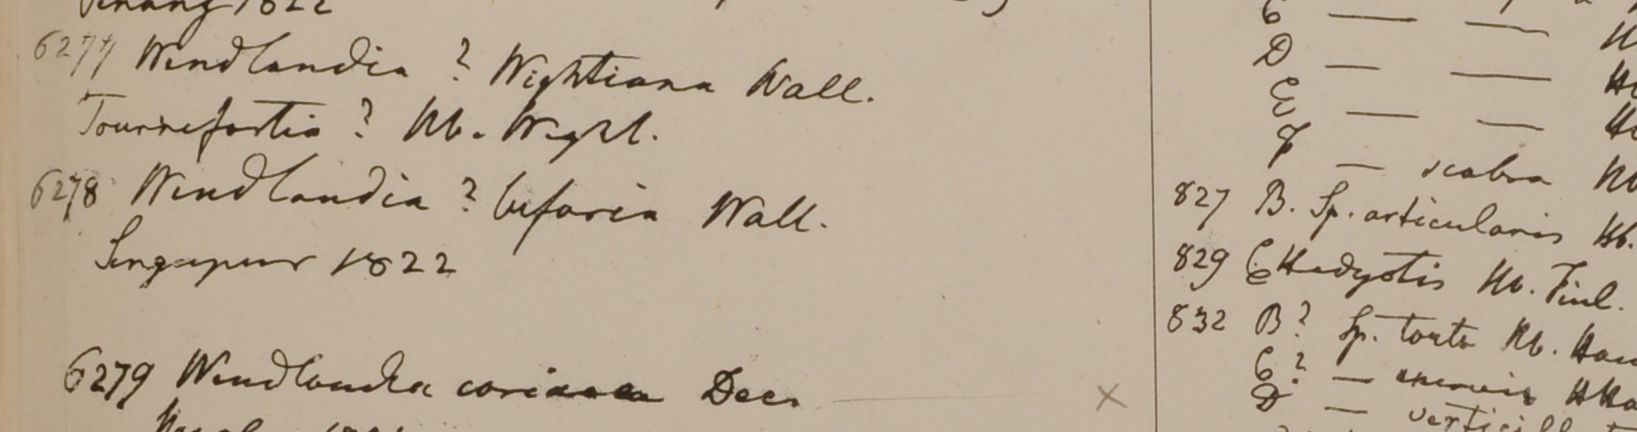 Penang 1822
6277 Wendlandia ? Wightiana Wall.
Tournefortia ? Hb. Wight.
6278 Wendlandia ? bifaria Wall.
Singapur 1822
6279 Wendlandia coriacea Dec.
×
C — —
D — —
E — —
F — scabra Hb
827 B. Sp. articularis Hb.
829 C Hedyotis Hb. Finl.
832 B? Sp. torta Hb. Ham
C? —
D —